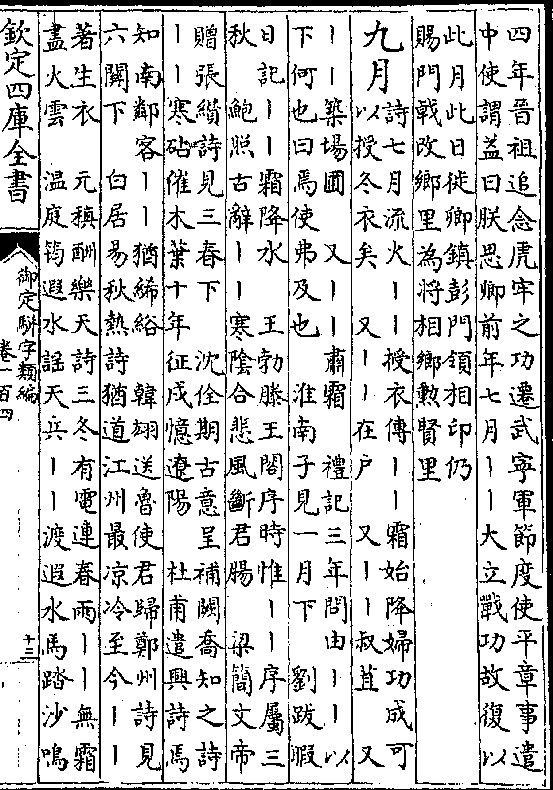 四年晉祖追念虎牢之功遷武寧軍節度使平章事遣
中使謂益曰朕思卿前年七月丨丨大立戰功故復以
此月此日徙卿鎮彭門領相印仍
賜門戟改鄉里為將相鄉勲賢里
九月
詩七月流火丨丨授衣傳丨丨霜始降婦功成可
以授冬衣矣 又丨丨在户 又丨丨叔苴 又
丨丨築場圃 又丨丨肅霜 禮記三年問由丨丨以
下何也曰焉使弗及也 淮南子見一月下 劉跂暇
日記丨丨霜降水 王勃滕王閣序時惟丨丨序屬三
秋 鮑照古辭丨丨寒陰合悲風斷君腸 梁簡文帝
贈張纘詩見三春下 沈佺期古意呈補闕喬知之詩
丨丨寒砧催木葉十年征戍憶遼陽 杜甫遣興詩焉
知南鄰客丨丨猶絺綌 韓翃送魯使君歸鄭州詩見
六闗下 白居易秋熱詩猶道江州最凉冷至今丨丨
著生衣 元稹酬樂天詩三冬有電連春雨丨丨無霜
盡火雲 温庭筠遐水謡天兵丨丨渡遐水馬踏沙鳴
欽定四庫全書
御定駢字類編
卷一百四
十三